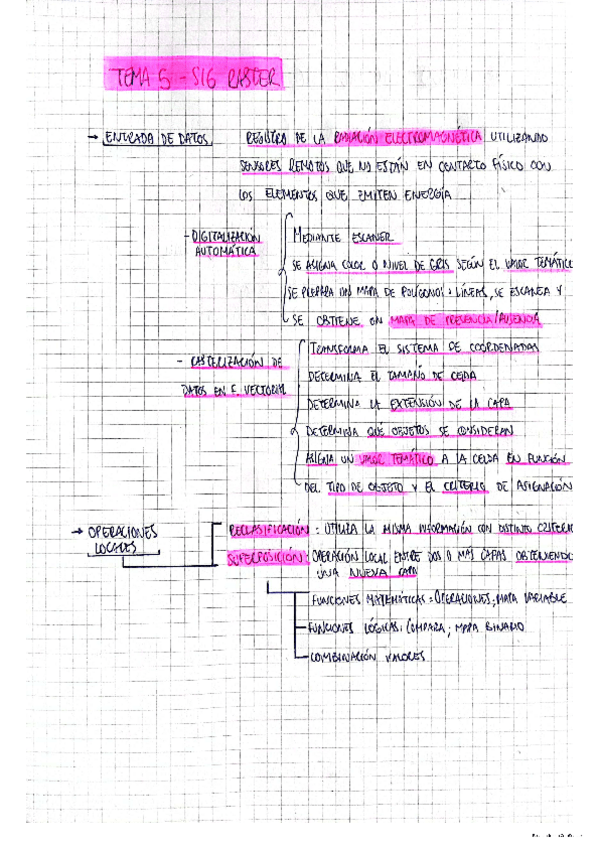 TEMA 5 - SIG RASTER
→ ENTRADA DE DATOS REGISTRO DE LA RADIACIÓN ELECTROMAGNÉTICA UTILIZANDO
SENSORES REMOTOS QUE NO ESTÁN EN CONTACTO FÍSICO CON
LOS ELEMENTOS QUE EMITEN ENERGÍA
- DIGITALIZACIÓN
AUTOMÁTICA
MEDIANTE ESCANER
SE ASIGNA COLOR O NIVEL DE GRIS SEGÚN EL VALOR TEMÁTICO
SE PREPARA UN MAPA DE POLÍGONOS, LÍNEAS, SE ESCANEA Y
SE OBTIENE UN MAPA DE PRESENCIA/AUSENCIA
- RASTERIZACIÓN DE
DATOS EN F. VECTORIAL
TRANSFORMA EL SISTEMA DE COORDENADAS
DETERMINA EL TAMAÑO DE CELDA
DETERMINA LA EXTENSIÓN DE LA CAPA
DETERMINA QUE OBJETOS SE CONSIDERAN
ASIGNA UN VALOR TEMÁTICO A LA CELDA EN FUNCIÓN
DEL TIPO DE OBJETO Y EL CRITERIO DE ASIGNACIÓN
→ OPERACIONES
LOCALES
RECLASIFICACIÓN: UTILIZA LA MISMA INFORMACIÓN CON DISTINTO CRITERIO
SUPERPOSICIÓN: OPERACIÓN LOCAL ENTRE DOS O MAS CAPAS OBTENIENDO
UNA NUEVA CAPA
FUNCIONES MATEMÁTICAS: OPERACIONES; MAPA VARIABLE
FUNCIONES LÓGICAS: COMPARA; MAPA BINARIO
COMBINACIÓN VALORES